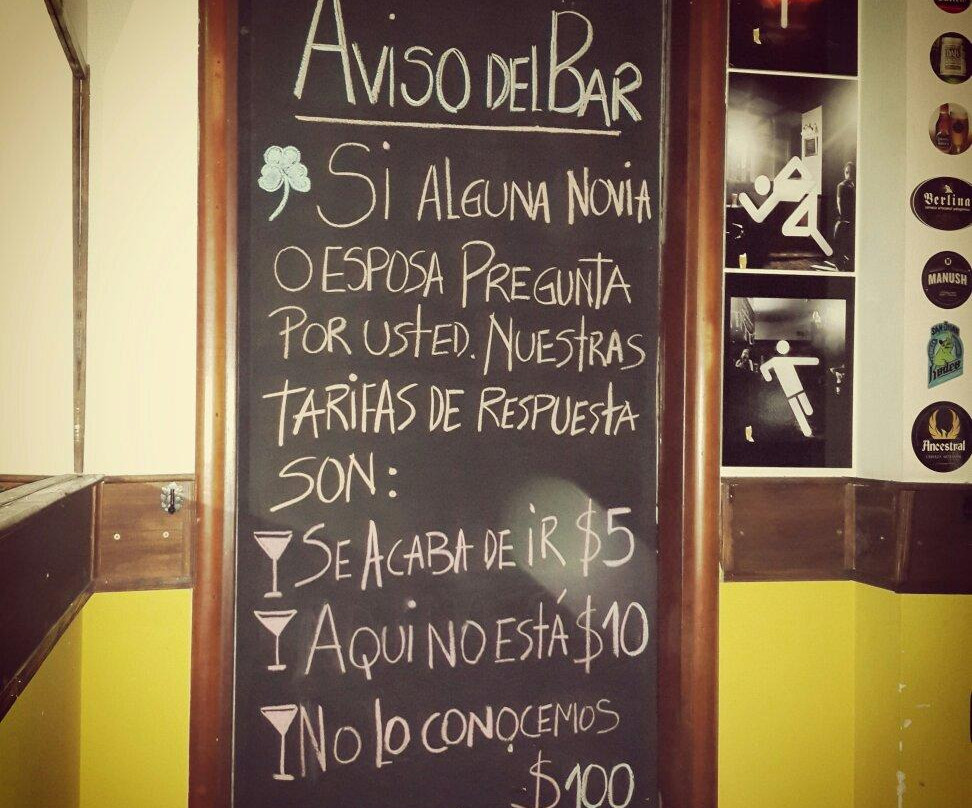 AVISO DEL BAR
SI ALGUNA NOVIA
O ESPOSA PREGUNTA
POR USTED. NUESTRAS
TARIFAS DE RESPUESTA
SON:
SE ACABA DE IR $5
AQUI NO ESTÁ $10
NO LO CONOCEMOS
$100
Berlina
MANUSH
Ancestral